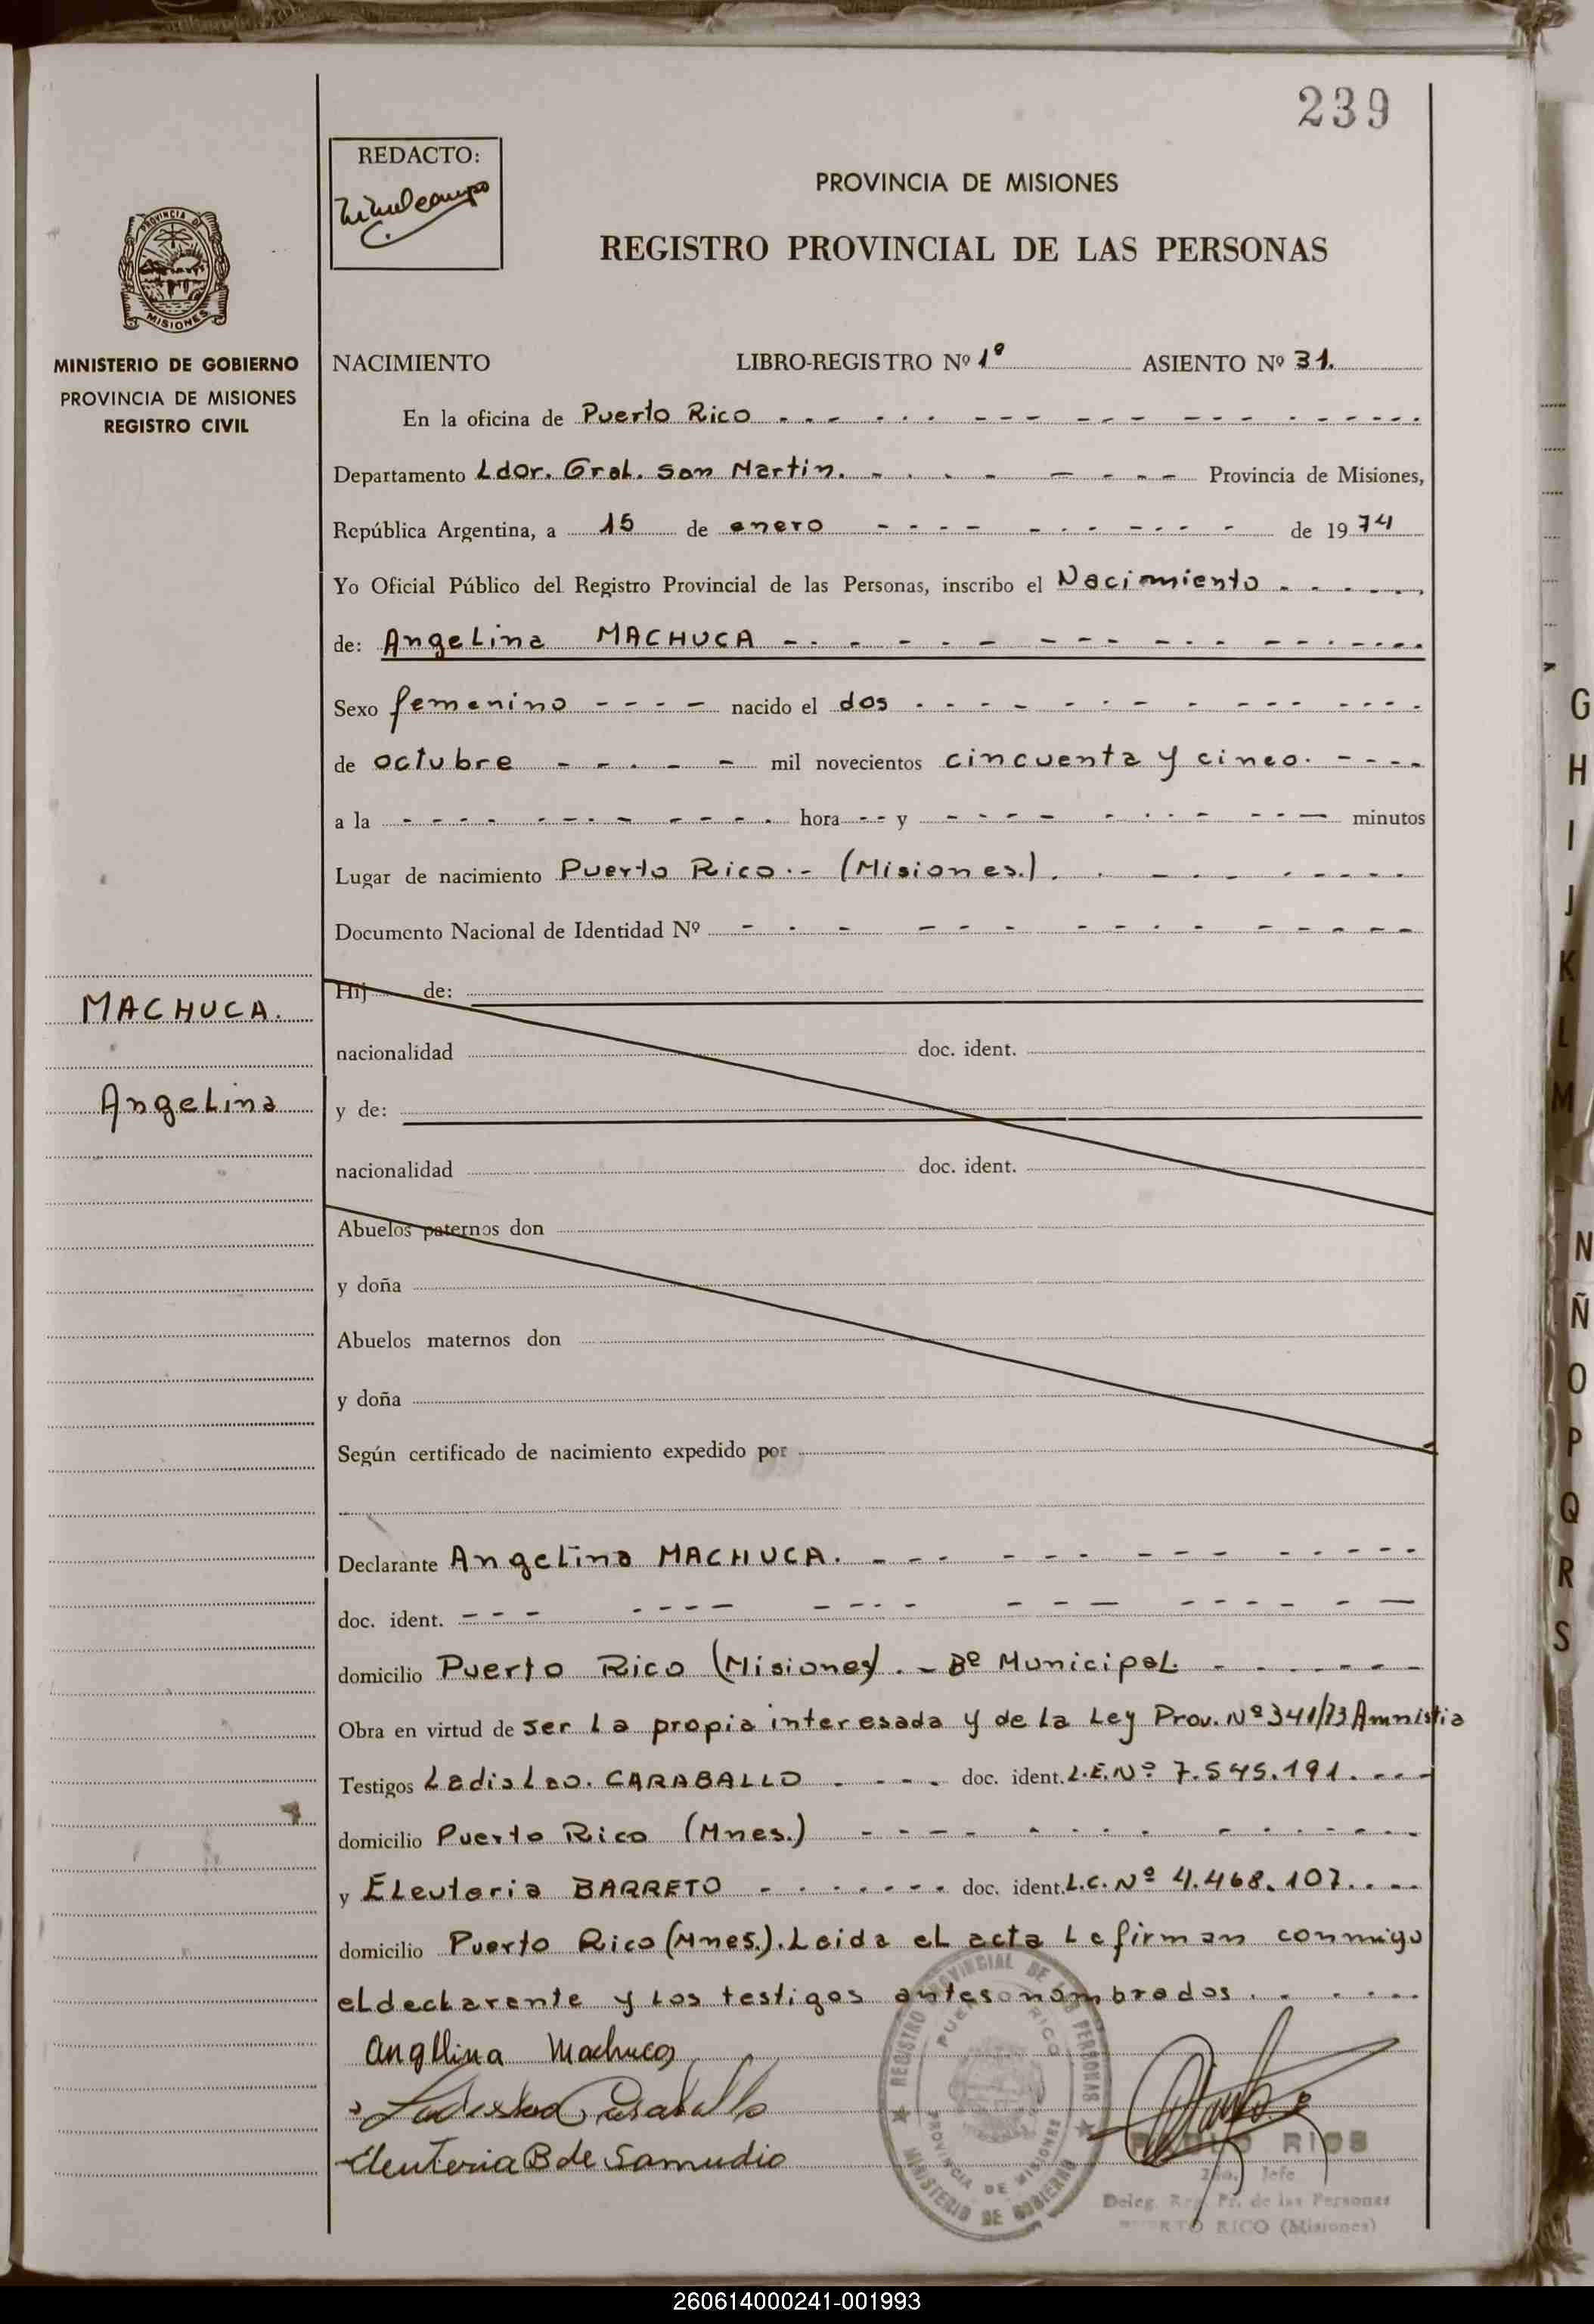 239
REDACTO:
PROVINCIA DE MISIONES
REGISTRO PROVINCIAL DE LAS PERSONAS
PROVINCIA DE
MISIONES
MINISTERIO DE GOBIERNO
PROVINCIA DE MISIONES
REGISTRO CIVIL
NACIMIENTO LIBRO-REGISTRO Nº 1º ASIENTO Nº 31.
En la oficina de Puerto Rico
Departamento Ldor. Gral. San Martin. Provincia de Misiones,
República Argentina, a 15 de enero de 1974
Yo Oficial Público del Registro Provincial de las Personas, inscribo el Nacimiento
de: Angelina MACHUCA
Sexo femenino nacido el dos
de octubre mil novecientos cincuenta y cinco.
a la hora y minutos
Lugar de nacimiento Puerto Rico.- (Misiones.).
Documento Nacional de Identidad Nº
MACHUCA.
Angelina
Hij de:
nacionalidad doc. ident.
y de:
nacionalidad doc. ident.
Abuelos paternos don
y doña
Abuelos maternos don
y doña
Según certificado de nacimiento expedido por
Declarante Angelina MACHUCA.
doc. ident.
domicilio Puerto Rico (Misiones). - Bº Municipal.
Obra en virtud de ser la propia interesada y de la Ley Prov. Nº 341/73 Amnistia
Testigos Ladislao. CARABALLO doc. ident. L.E. Nº 7.545.191.
domicilio Puerto Rico (Mnes.)
y Eleuteria BARRETO doc. ident. L.C. Nº 4.468.107.
domicilio Puerto Rico (Mnes.). Leida el acta la firman conmigo
el declarante y los testigos antes nombrados.
Angelina Machuca
Ladislao Caraballo
Eleuteria B de Samudio
REGISTRO PROVINCIAL DE LAS PERSONAS
PUERTO RICO
PROVINCIA DE MISIONES
MINISTERIO DE GOBIERNO
RIOS
Jefe
Deleg. Reg. Pr. de las Personas
PUERTO RICO (Misiones)
G
H
I
J
K
L
M
N
Ñ
O
P
Q
R
S
260614000241-001993